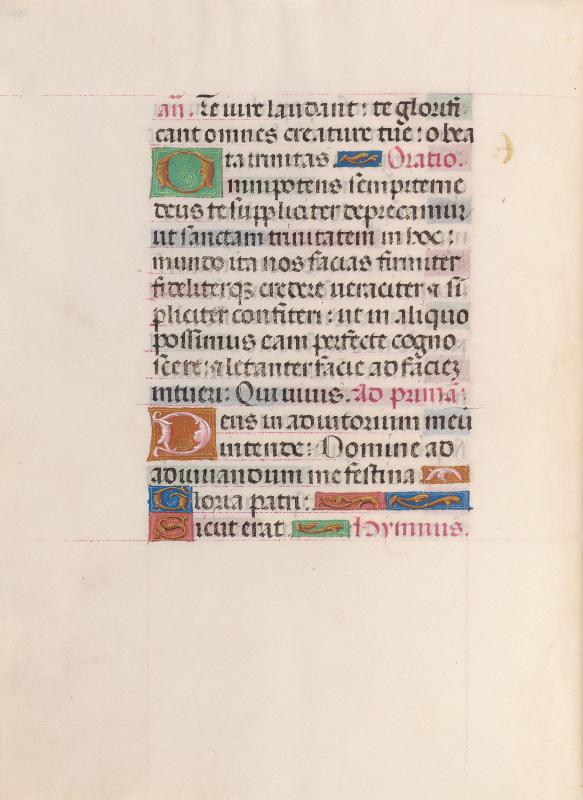 añ. Te iure laudant: te glorifi
cant omnes creature tue: o bea
ta trinitas. Oratio.
Omnipotens sempiterne
deus te suppliciter deprecamur
ut sanctam trinitatem in hoc:
mundo ita nos facias firmiter
fideliterqꝫ credere ueraciter ⁊ sī
pliciter confiteri: ut in aliquo
possimus eam perfecte cogno
scere: letanter facie ad faciēȝ
intueri: Qui uiuis. Ad primā
Deus in adiutorium meū
intende: Domine ad
adiuuandum me festina
Gloria patri:
Sicut erat. Hymnus.